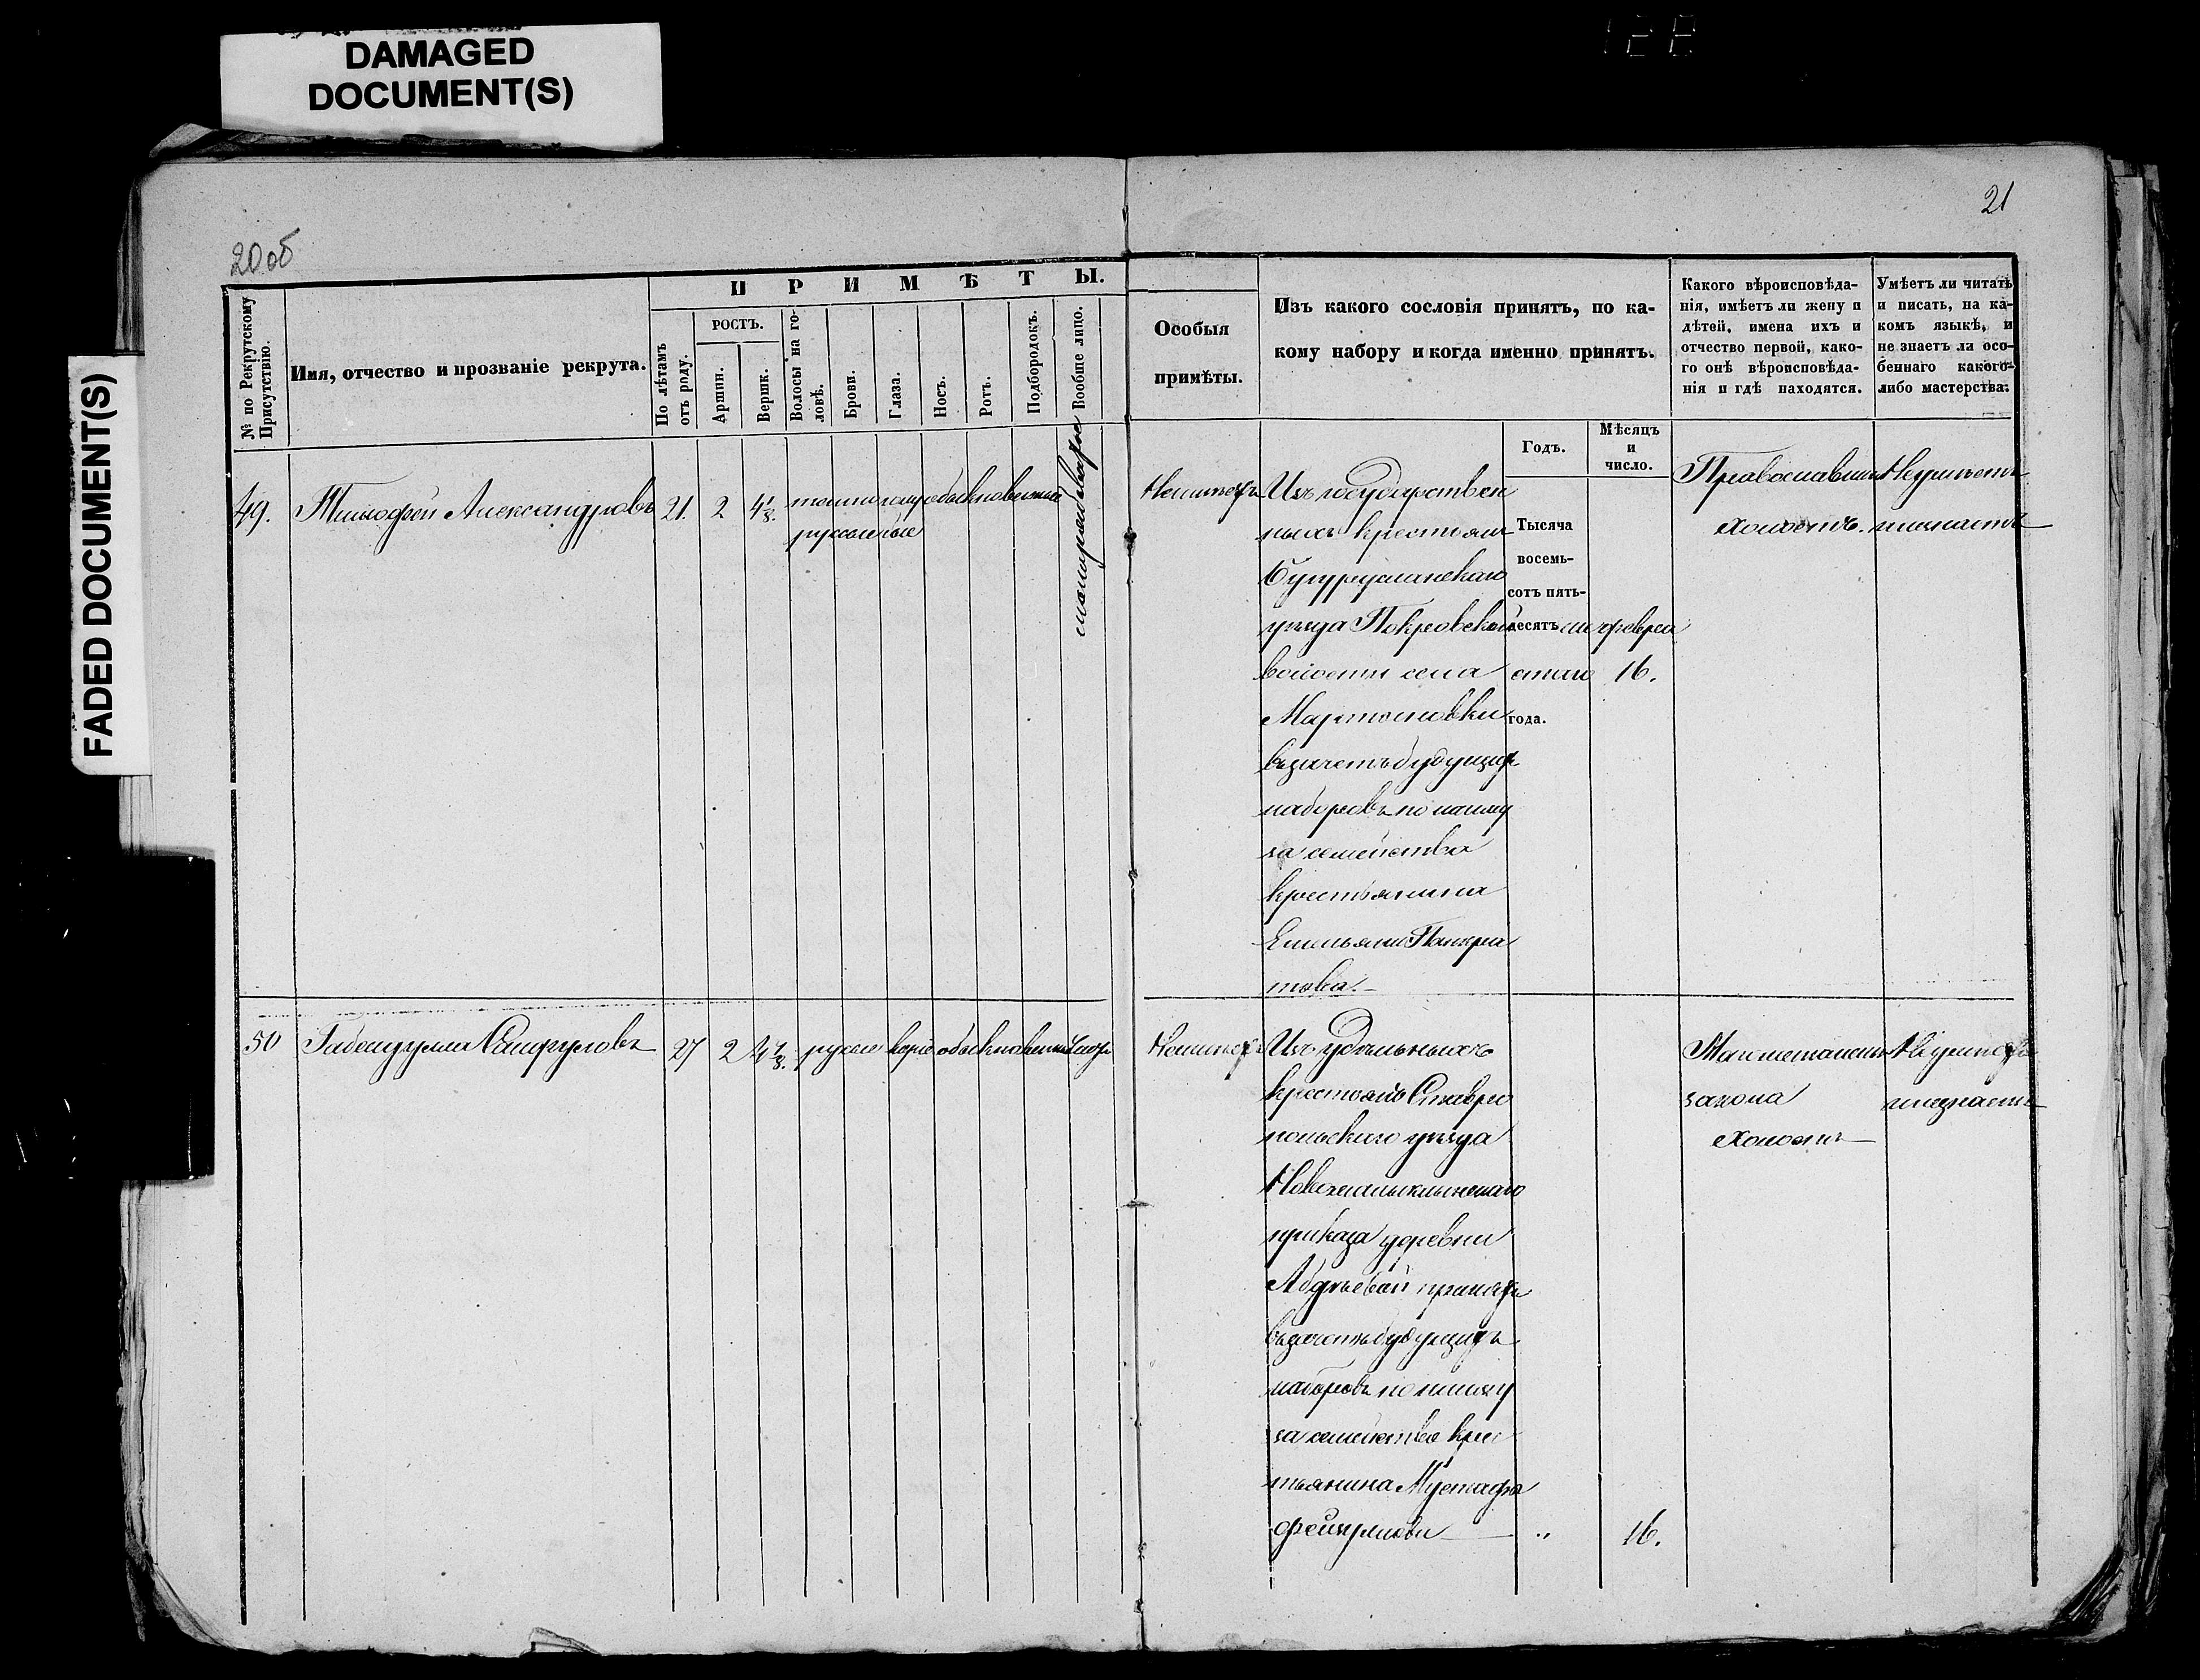 DAMAGED
DOCUMENT(S)
FADED DOCUMENT(S)
20 об
21
№ по Рекрутскому
Присутствію.
Имя, отчество и прозваніе рекрута.
П Р И М Ѣ Т Ы.
По лѣтамъ
отъ роду.
РОСТЪ.
Аршин.
Вершк.
Волосы на го-
ловѣ.
Брови.
Глаза.
Носъ.
Ротъ.
Подбородокъ.
Вообще лицо.
Особыя
примѣты.
Изъ какого сословія принятъ, по ка-
кому набору и когда именно принятъ.
Какого вѣроисповѣда-
нія, имѣетъ ли жену и
дѣтей, имена ихъ и
отчество первой, како-
го онѣ вѣроисповѣда-
нія и гдѣ находятся.
Умѣетъ ли читать
и писать, на ка-
комъ языкѣ, и
не знаетъ ли осо-
беннаго какого-
либо мастерства.
Годъ.
Мѣсяцъ
и
число.
49.
Тимофей Александровъ
21.
2
4 1/8.
темно
русые
голу
бые
обыкновенный
Неимѣетъ
Изъ государствен
ныхъ крестьянъ
Бугурусланскаго
уѣзда Покровской
волости села
въ зачетъ будущихъ
наборовъ по найму
за семейство
крестьянина
Емельяна Панкра
това.
Тысяча
восемь-
сотъ пять-
десятъ ше
стаго
года.
февраля
16.
Православный
холостъ.
Неумѣетъ
незнаетъ
50
27
2
русые
каріе
обыкновенный
Неимѣетъ
Изъ удѣльныхъ
крестьянъ Ставро
польскаго уѣзда
приказа деревни
въ зачетъ будущихъ
наборовъ по найму
за семейство крес
тьянина Мустафы
"
16.
закона
холостъ
Неумѣетъ
незнаетъ